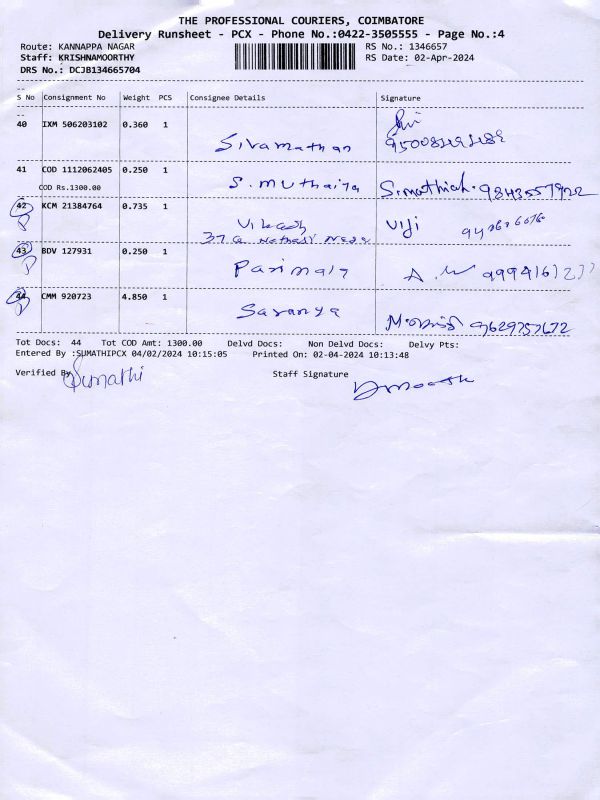 THE PROFESSIONAL COURIERS, COIMBATORE
Delivery Runsheet - PCX - Phone No.:0422-3505555 - Page No.:4
Route: KANNAPPA NAGAR RS No.: 1346657
Staff: KRISHNAMOORTHY RS Date: 02-Apr-2024
DRS No.: DCJB134665704
S No Consignment No Weight PCS Consignee Details Signature
40 IXM 506203102 0.360 1
Sivamathan
41 COD 1112062405 0.250 1
COD Rs.1300.00 S. muthaiya S. muthiah. 9843557922
42 KCM 21384764 0.735 1
Vikash Viji
37 G
43 BDV 127931 0.250 1
Parimala
44 CMM 920723 4.850 1
Saranya 9629757672
Tot Docs: 44 Tot COD Amt: 1300.00 Delvd Docs: Non Delvd Docs: Delvy Pts:
Entered By :SUMATHIPCX 04/02/2024 10:15:05 Printed On: 02-04-2024 10:13:48
Verified By Sumathi Staff Signature